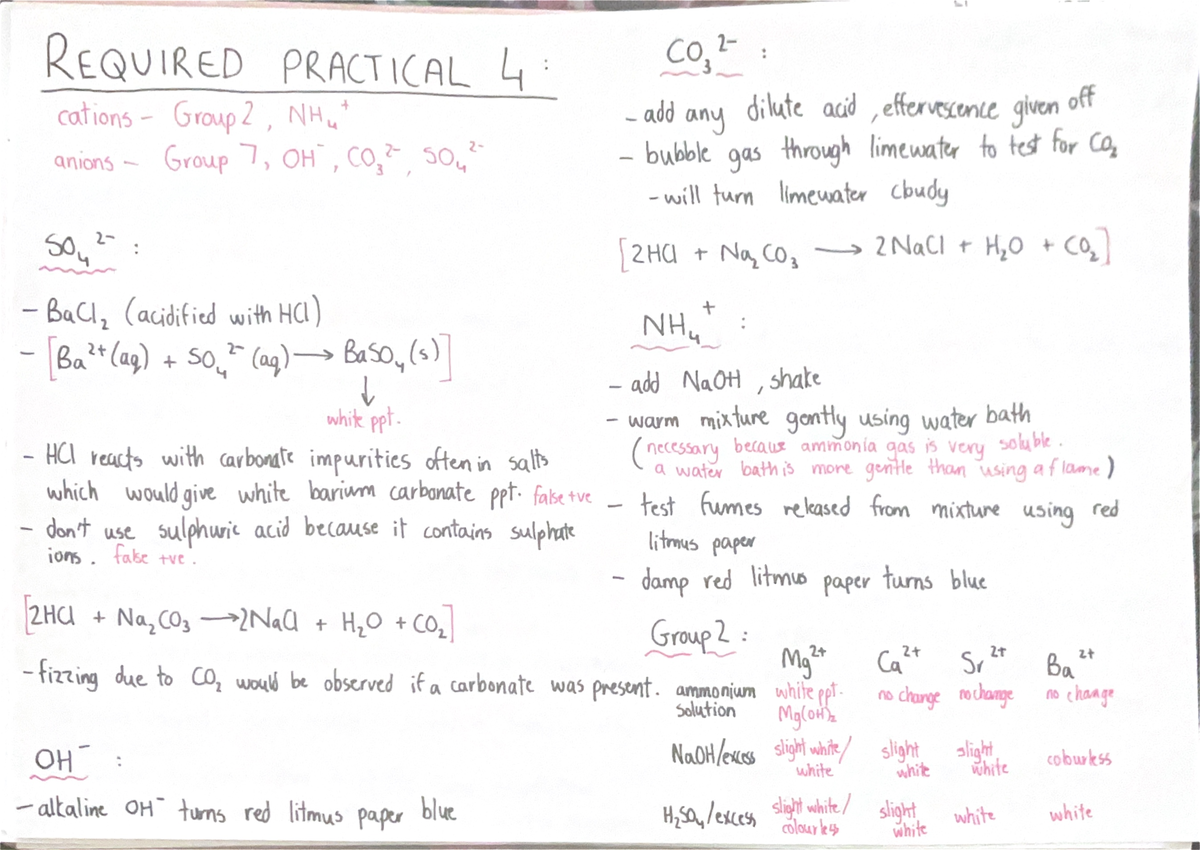 REQUIRED PRACTICAL 4 :
cations - Group 2, NH₄⁺
anions - Group 7, OH⁻, CO₃²⁻, SO₄²⁻
SO₄²⁻ :
- BaCl₂ (acidified with HCl)
- [Ba²⁺(aq) + SO₄²⁻(aq) → BaSO₄(s)]
↓
white ppt.
- HCl reacts with carbonate impurities often in salts
which would give white barium carbonate ppt. false +ve
- don't use sulphuric acid because it contains sulphate
ions. false +ve.
[2HCl + Na₂CO₃ → 2NaCl + H₂O + CO₂]
- fizzing due to CO₂ would be observed if a carbonate was present.
OH⁻ :
- alkaline OH⁻ turns red litmus paper blue
CO₃²⁻ :
- add any dilute acid, effervescence given off
- bubble gas through limewater to test for CO₂
- will turn limewater cloudy
[2HCl + Na₂CO₃ → 2NaCl + H₂O + CO₂]
NH₄⁺ :
- add NaOH, shake
- warm mixture gently using water bath
(necessary becaus ammonia gas is very soluble.
a water bath is more gentle than using a flame)
- test fumes released from mixture using red
litmus paper
- damp red litmus paper turns blue
Group 2 :
Mg²⁺ Ca²⁺ Sr²⁺ Ba²⁺
ammonium white ppt. no change no change no change
solution Mg(OH)₂
NaOH/excess slight white/ slight slight colourless
white white white
H₂SO₄/excess slight white/ slight white white
colourless white